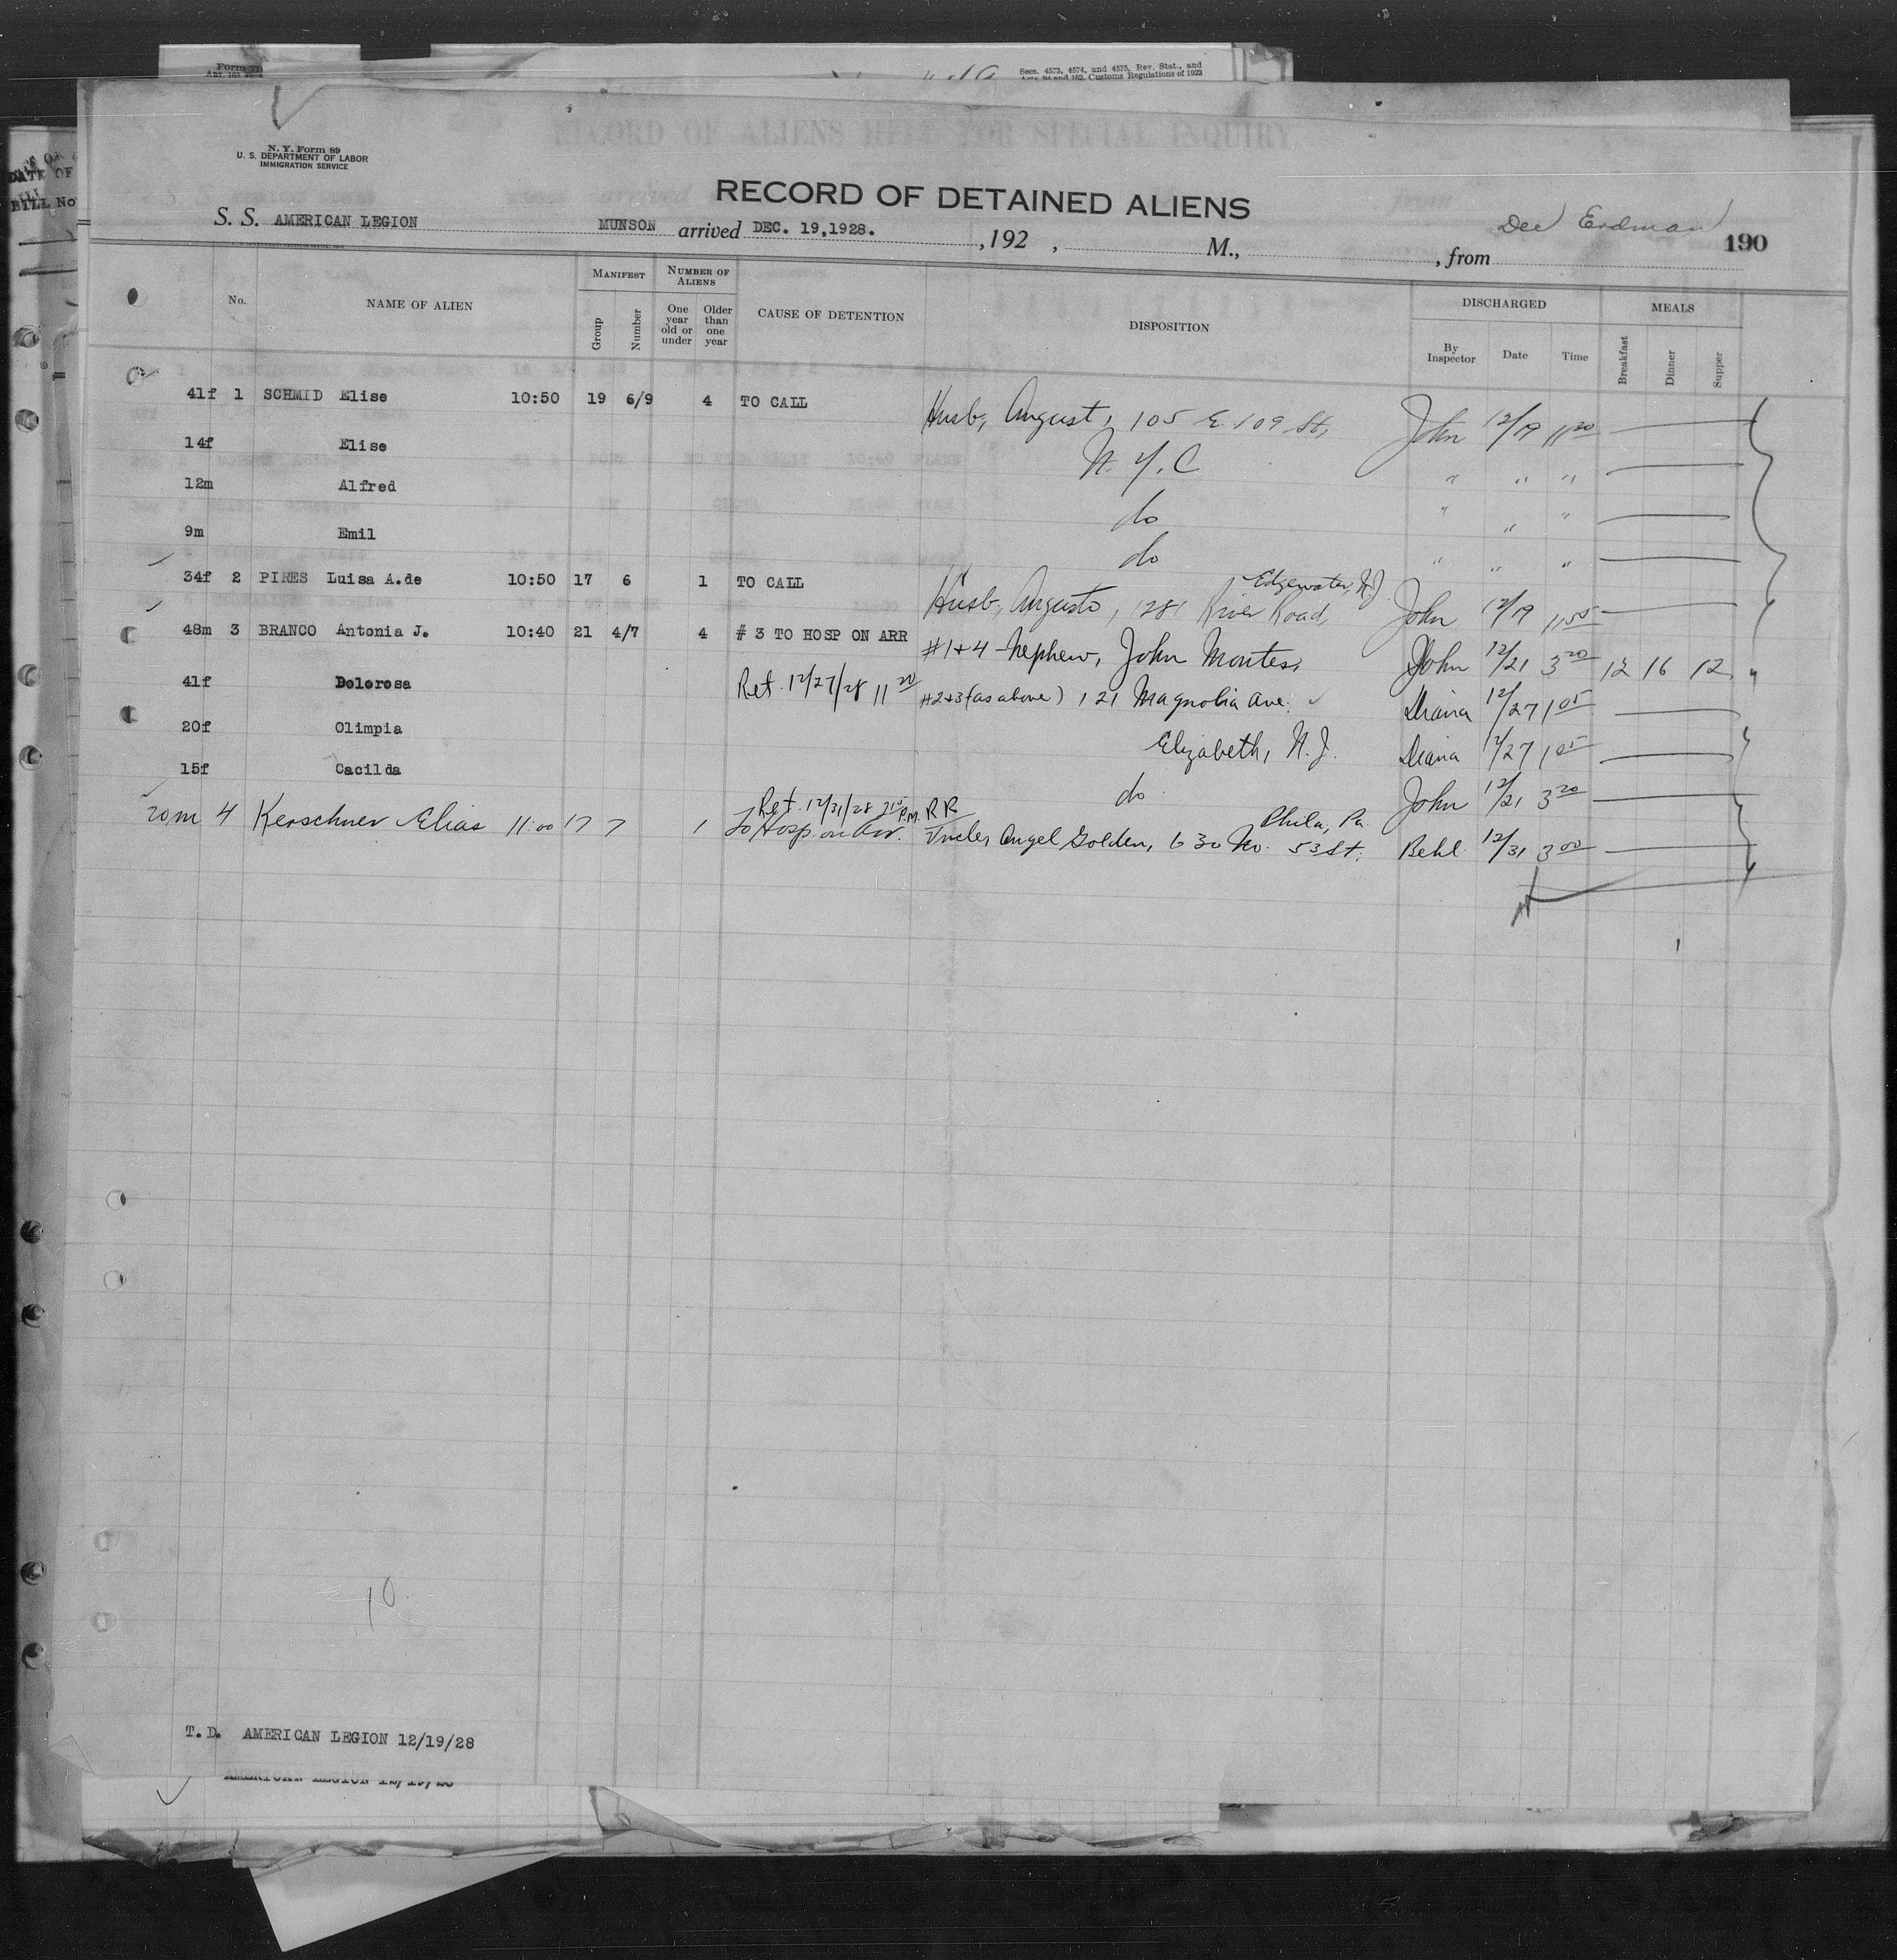 Form 71
Secs. 4573, 4574, and 4575, Rev. Stat., and
Arts. 94 and 162, Customs Regulations of 1923
DATE OF
BILL NO
RECORD OF ALIENS HELD FOR SPECIAL INQUIRY
N. Y. Form 89
U. S. DEPARTMENT OF LABOR
IMMIGRATION SERVICE
RECORD OF DETAINED ALIENS
S. S. AMERICAN LEGION MUNSON arrived DEC. 19,1928. , 192 , M., , from Dec Erdman 190
No. NAME OF ALIEN MANIFEST NUMBER OF ALIENS CAUSE OF DETENTION DISPOSITION DISCHARGED MEALS
Group Number One year old or under Older than one year By Inspector Date Time Breakfast Dinner Supper
41f 1 SCHMID Elise 10:50 19 6/9 4 TO CALL Husb, August, 105 E. 109 St, John 12/19 11 20
14f Elise N. Y. C " " "
12m Alfred do " " "
9m Emil do " " "
34f 2 PIRES Luisa A.de 10:50 17 6 1 TO CALL Husb, Augusto, 1281 River Road, Edgewater, N.J. John 12/19 11 55
48m 3 BRANCO Antonia J. 10:40 21 4/7 4 # 3 TO HOSP ON ARR #1+4 - Nephew, John Montes, John 12/21 3 20 12 16 12 "
41f Dolorosa Ret. 12/27/28 11 20 #2+3 (as above) 121 Magnolia Ave. Diana 12/27 1 05
20f Olimpia Elizabeth, N. J. Diana 12/27 1 05
15f Cacilda do John 12/21 3 20
Ret. 12/31/28 P.M. RR
20m 4 Kerschner Elias 11:00 17 7 1 To Hosp on Arr. Uncle, Angel Golden, 630 No. 53 St. Phila, Pa. Behl 12/31 3 00
10
T.D. AMERICAN LEGION 12/19/28
AMERICAN LEGION 12/19/28